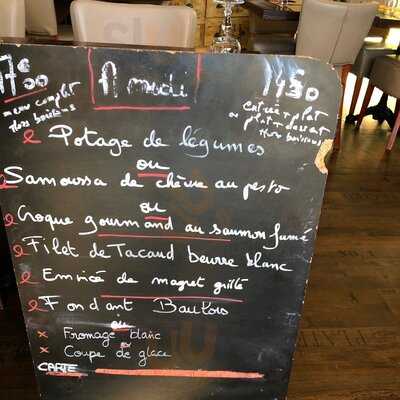 17€00
menu complet
Hors boissons
A midi
14€50
entrée + plat
ou plat + dessert
Hors boissons
Potage de légumes
ou
Samoussa de chèvre au pesto
ou
Croque gourmand au saumon fumé
Filet de Tacaud beurre blanc
Emincé de magret grillé
Fondant Baulois
ou
x Fromage blanc
x Coupe de glace
CARTE